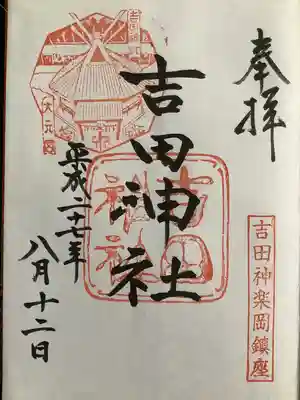 奉拝
吉田神楽岡鎮座
吉田神社
吉田神社
平成二十七年
八月十二日
吉田神社
大元宮